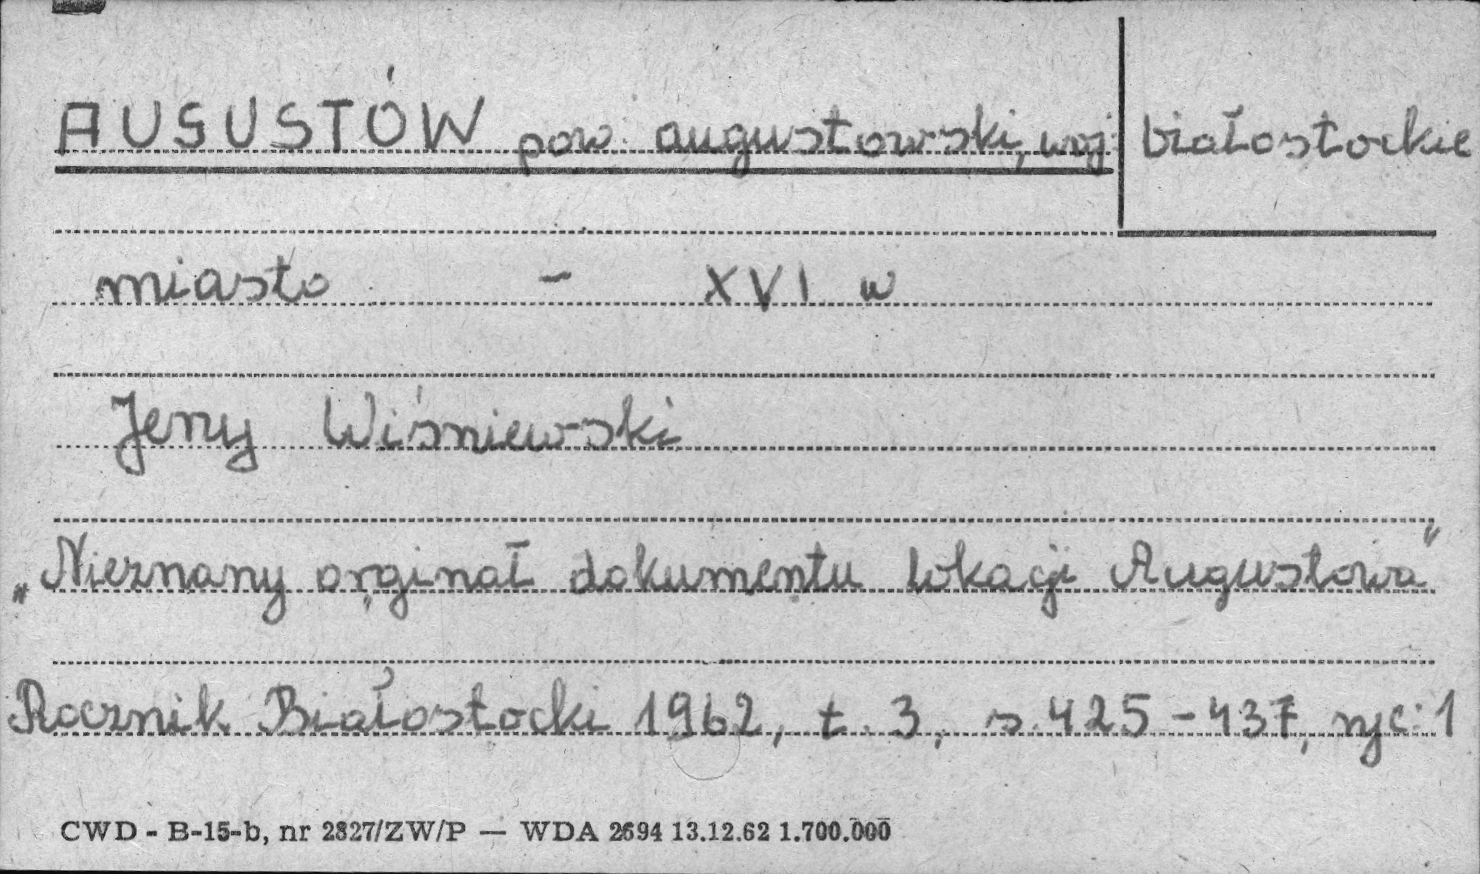 AUGUSTÓW pow. augustowski, woj. białostockie
miasto – XVI w
Jerzy Wiśniewski
„Nieznany orginał dokumentu lokacji Augustowa"
Rocznik Białostocki 1962, t. 3, s. 425-437, ryc: 1
CWD - B-15-b, nr 2827/ZW/P — WDA 2694 13.12.62 1.700.000